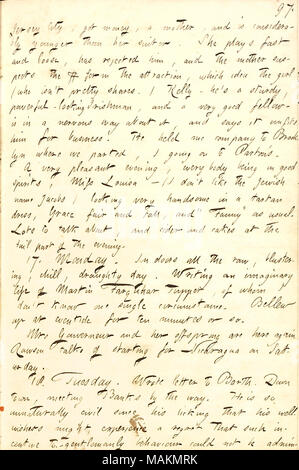 97.
Jersey City, got money, a mother, and is considera-
bly younger than her suitor. She plays fast
and loose, has rejected him, and the mother sus-
pects the is the attraction, which idea the girl
(who isn't pretty) shares. (Kelly he's a sturdy,
powerful-looking Irishman, and a very good fellow
is in a nervous way about it and says it unfits
him for business. He held me company to Brook-
lyn where we parted, I going on to Parton's.
A very pleasant evening, everybody being in good
spirits, Miss Louisa (I don't like the Jewish
name Jacobs) looking very handsome in a tartan
dress, Grace fair and tall, and "Fanny" as usual.
Lots to talk about, and cider and cakes at the
tail part of the evening.
17. Monday. In doors all the raw, bluster-
ing, chill, draughty day. Writing an imaginary
life of Martin Farquhar Tupper, of whom
I don't know one single circumstance. Bellew
up at twilight for ten minutes or so.
Mrs. Gouverneur and her offspring are here again.
Rawson talks of starting for Nicaragua on Sat-
urday.
18. Tuesday. Wrote letter to Barth. Down
town, meeting Banks by the way. He is so
unnaturally civil since his licking that his well
wishers might experience a regret that such in-
centive to gentlemanly behaviour could not be admin-
alamy
Image ID: MAKMRK
www.alamy.com